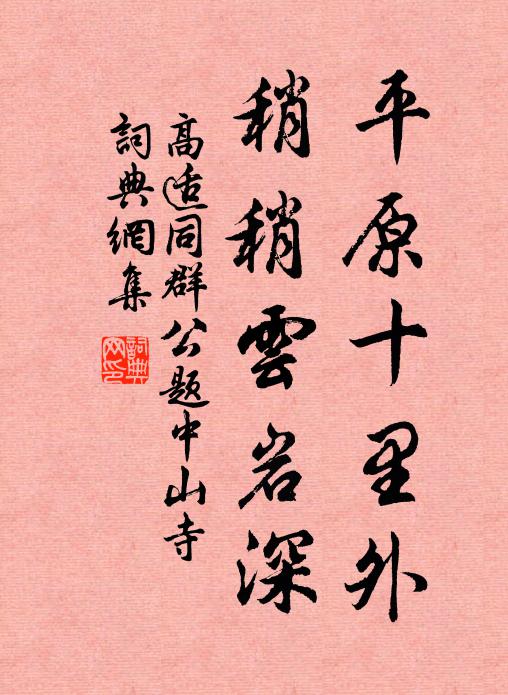 平原十里外
稍稍雲岩深
高适同群公題中山寺
詞典網集
詞典網印